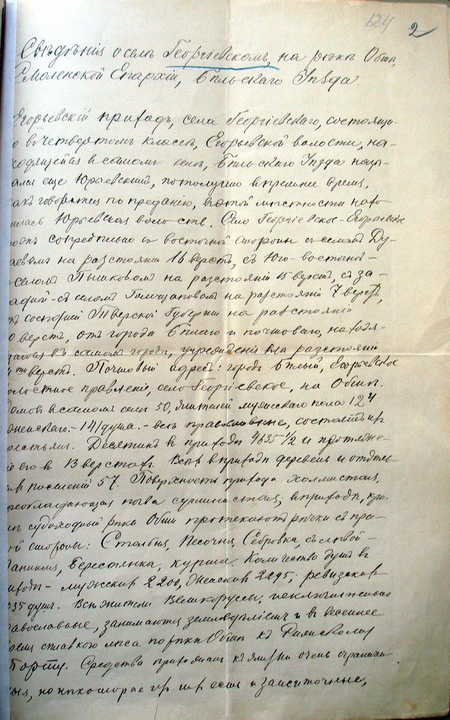 124 2
Свѣдѣнія о селѣ Георгіевскомъ, на рѣкѣ Обши,
Смоленской Епархіи, Бѣльскаго Уѣзда.
Егорьевскій приходъ, села Георгіевскаго, состоящаго
въ четвертомъ классѣ, Егорьевской волости, на-
ходящейся въ самомъ селѣ, Бѣльскаго Уѣзда назы-
вался еще Юрьевскій, потому что въ прежнее время,
какъ говорится по преданію, въ этой мѣстности нахо-
дилась Юрьевская волость. Село Георгіевское-Егорьевское
сопредѣльно съ восточной стороны съ селомъ Ду-
на разстояніи 16 верстъ, съ Юго-восточной-
селомъ Пышковомъ на разстояніи 15 верстъ, съ за-
падной-съ селомъ на разстояніи 7 верстъ,
Тверской Губерніи на разстояніи
верстъ, отъ города Бѣлаго и почтоваго, находя-
щагося въ самомъ городѣ, учрежденія на разстояніи
верстъ. Почтовый адресъ: городъ Бѣлый, Егорьевское
волостное правленіе, село Георгіевское, на Обши.
Домовъ въ самомъ селѣ 50, жителей мужескаго пола 124
женскаго-141 душа.- всѣ православные, состоятъ изъ
Десятинъ въ приходѣ 4635 1/2 и протяже-
ніе его въ 13 верстахъ. Всѣхъ въ приходѣ деревень и отдѣль-
ныхъ поселеній 57. Поверхность прихода холмистая,
преобладающая почва суглинистая, въ приходѣ, кро-
мѣ судоходной рѣки Обши протекаютъ рѣчки съ пра-
вой стороны: Столбна, Песочня, Себровка, съ лѣвой-
Вапиния, Берестянка, Курила. Количество душъ въ
приходѣ - мужскихъ 2200, женскихъ 2295, ревизскихъ
душъ. Всѣ жители Великоруссы, исключительно
православные, занимаются земледѣліемъ и въ весеннее
время сплавкой лѣса по рѣкѣ Обши къ Рижскому
Порту. Средства прихожанъ къ жизни очень ограничен-
ныя, но нѣкоторые изъ нихъ есть и зажиточные,